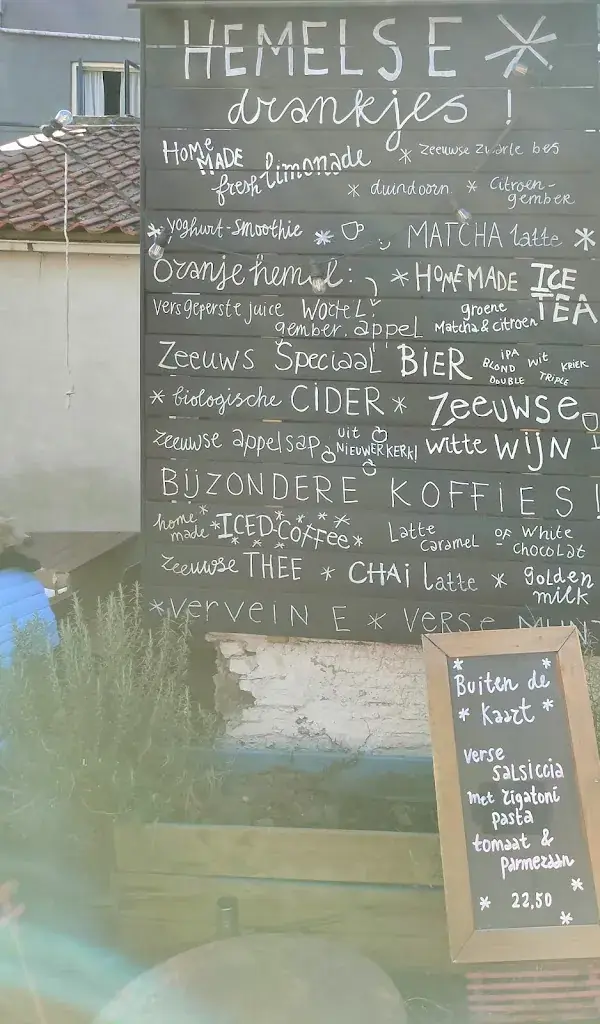 HEMELSE *
drankjes !
HOMEMADE fresh limonade * zeeuwse zwarte bes
* duindoorn * Citroen-gember
* yoghurt-smoothie * MATCHA latte *
Oranje hemel: * HOMEMADE ICE TEA
vers geperste juice WORTEL
gember. appel
groene
Matcha & citroen
Zeeuws Speciaal BIER IPA BLOND wit KRIEK DOUBLE TRIPLE
* biologische CIDER * Zeeuwse
zeeuwse appelsap uit NIEUWERKERK! witte WIJN
BIJZONDERE KOFFIES!
home made * ICED COFFee * Latte caramel OF White chocolat
zeeuwse THEE * CHAi latte * golden milk
* verveine * verse munt
* *
Buiten de
* kaart *
verse
salsiccia
met rigatoni
pasta
tomaat &
parmezaan
* 22,50 *
*